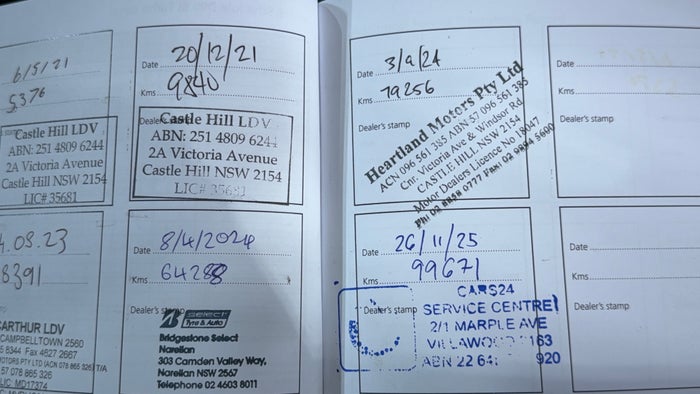 6/5/21
5376
Castle Hill LDV
ABN: 251 4809 6244
2A Victoria Avenue
Castle Hill NSW 2154
LIC# 35681
Date 20/12/21
Kms 9840
Dealer's
Castle Hill LDV
ABN: 251 4809 6244
2A Victoria Avenue
Castle Hill NSW 2154
LIC# 35681
.08.23
8391
ARTHUR LDV
CAMPBELLTOWN 2560
8344 Fax 4627 2667
57 078 865 326
LIC. MD17374
Date 8/4/2024
Kms 64288
Dealer's
SELECT
Tyre & Auto
Bridgestone Select
Narellan
303 Camden Valley Way,
Narellan NSW 2567
Telephone 02 4603 8011
Date 3/9/24
Kms 79256
Dealer's stamp
Heartland Motors Pty Ltd
ACN 096 561 385 ABN 57 096 561 385
Cnr. Victoria Ave & Windsor Rd
CASTLE HILL NSW 2154
Motor Dealers Licence No 18047
Ph: 02 8858 0777 Fax: 02 9894 5600
Date 26/11/25
Kms 99671
Dealer's stamp
CARS24
SERVICE CENTRE
2/1 MARPLE AVE
VILLAWOOD 163
ABN 22 64 920
Date
Kms
Dealer's stamp
Date
Kms
Dealer's stamp